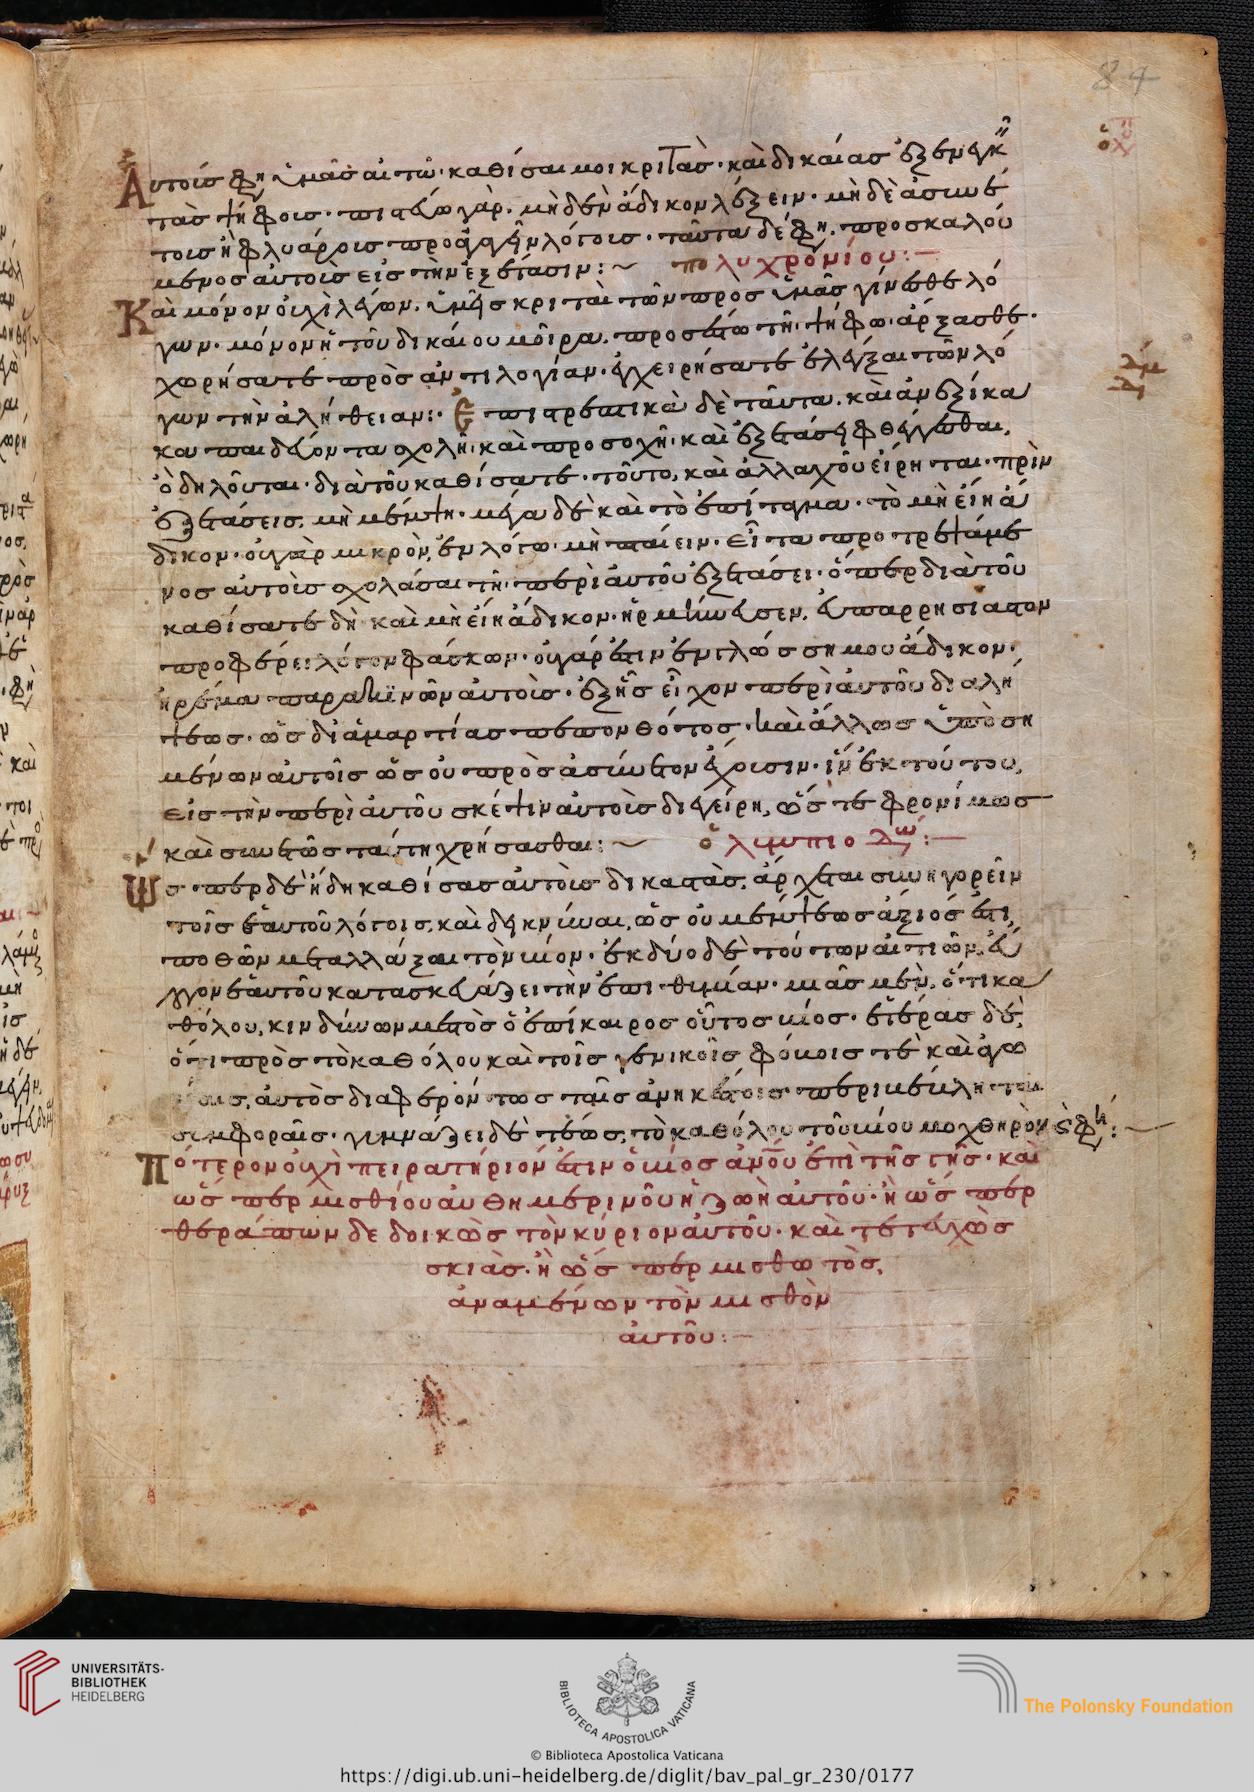 84
Αὐτούς φη ὑμᾶς αἰτῶ· καθίσαι μοι κριτάς· καὶ δικαίας ἐξενεγκ
τὰς ψήφοις· πιστεύω γάρ· μηδὲν ἄδικον λέξειν· μηδὲ ἀσυνέ
τοις ἢ φλυάροις λόγοις· ταῦτα δέ φη, προσκαλού
μενος αὐτοὺς εἰς τὴν ἐξέτασιν: ~ πολυχρονίου: –
Καὶ μόνον οὐχὶ λέγων, ὑμεῖς κριταὶ τῶν πρὸς ὑμᾶς γίνεσθε λό
γων· μόνον ἡ τοῦ δικαίου μοῖρα, προσέστω τῇ ψήφω· ἄρξασθε·
χωρήσατε πρὸς ἀντιλογίαν· ἐγχειρήσατε ἐλέγξαι τῶν λό
γων τὴν ἀλήθειαν: Ἐπιστρεπτικὰ δὲ ταῦτα, καὶ ἀνεξίκα
κα παιδεύοντα σχολῆ, καὶ προσοχῆ, καὶ ἐξετάσει φθέγγεσθαι,
ὃ δηλοῦται διὰ τοῦ καθίσατε· τοῦτο, καὶ ἀλλαχοῦ εἴρηται· πρὶν
ἐξετάσεις, μὴ μέμψη· μέγα δὲ καὶ τὸ ἐπίταγμα· τὸ μὴ εἴη ἄ
δικον· οὐ γὰρ μικρὸν, ἐν λόγω μὴ πταίειν· εἶτα προτρεψάμε
νος αὐτοὺς σχολάσαι τῇ περὶ αὐτοῦ ἐξετάσει· ὅπερ διὰ τοῦ
καθίσατε δὴ καὶ μὴ εἴη ἄδικον· ἡρμήνευσεν, εὐπαρρησίαστον
προφέρει λόγον φάσκων· οὐ γάρ ἐστιν ἐν γλώσση μου ἄδικον·
ἠρέμα παρακινῶν αὐτοὺς· ἐξ ἧς εἶχον περὶ αὐτοῦ διαλή
ψεως· ὡς δι' ἁμαρτίας πεπονθότος· καὶ ἄλλως
μένων αὐτοῖς ὡς οὐ πρὸς ἀσύνετον ἔχουσιν· ἵν' ἐκ τούτου,
εἰς τὴν περὶ αὐτοῦ σκέψιν αὐτοὺς διεγείρη, ὥστε φρονίμως
καὶ συνετῶς ταύτη χρήσασθαι: ~ ὀλυμπιοδώ: –
Ὥσπερ δὲ ἤδη καθίσας αὐτοὺς δικαστὰς, ἄρχεται συνηγορεῖν
τοῖς ἑαυτοῦ λόγοις, καὶ δεικνύναι, ὡς οὐ μέμψεως ἄξιός ἐστι,
ποθῶν μεταλλάξαι τὸν βίον· ἐκ δύο δὲ τούτων αἰτιῶν, εὔ
λογον ἑαυτοῦ κατασκευάζει τὴν ἐπιθυμίαν· μιᾶς μὲν, ὅτι κα
θόλου, κινδύνων μεστὸς ὁ ἐπίκαιρος οὗτος βίος· ἑτέρας δὲ,
ὅτι πρὸς τὸ καθόλου καὶ τοῖς γενικοῖς
αὐτὸς διαφερόντως ταῖς ἀνηκέστοις περιβέβληται
συμφοραῖς· γυμνάζει δὲ τέως, τὸ καθόλου τοῦ βίου μοχθηρόν, κὲ φη: ~
Πότερον οὐχὶ πειρατήριόν ἐστιν ὁ βίος ἀνου ἐπὶ τῆς γῆς· καὶ
ὥσπερ μισθίου αὐθημερινοῦ ἡ ζωὴ αὐτοῦ· ἢ ὥσπερ
θεράπων δεδοικὼς τὸν κύριον αὐτοῦ· καὶ τετευχὼς
σκιᾶς· ἢ ὥσπερ μισθωτὸς,
ἀναμένων τὸν μισθὸν
αὐτοῦ: –
UNIVERSITÄTS-
BIBLIOTHEK
HEIDELBERG
BIBLIOTECA APOSTOLICA VATICANA
The Polonsky Foundation
© Biblioteca Apostolica Vaticana
https://digi.ub.uni-heidelberg.de/diglit/bav_pal_gr_230/0177